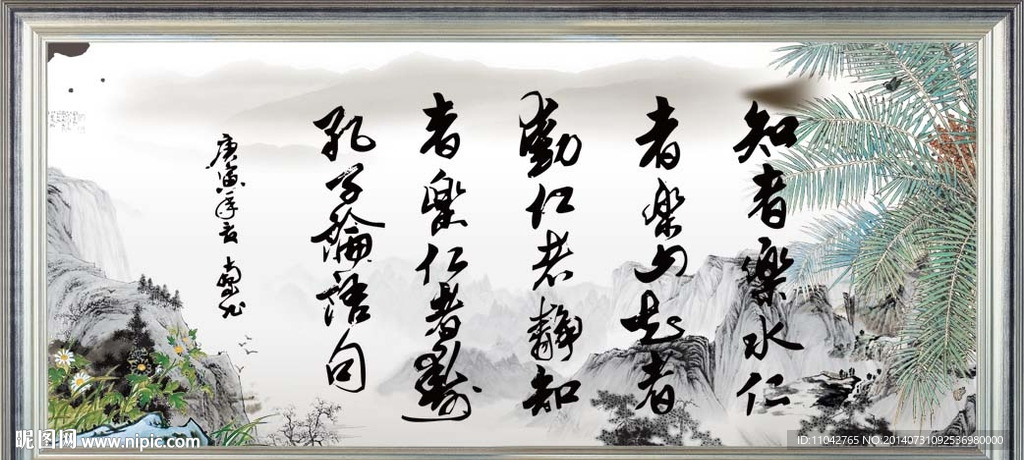 知者樂水仁
者樂山知者
動仁者靜知
者樂仁者壽
孔子論語句
庚寅年
昵图网 www.nipic.com
ID:11042765 NO.20140731092536980000